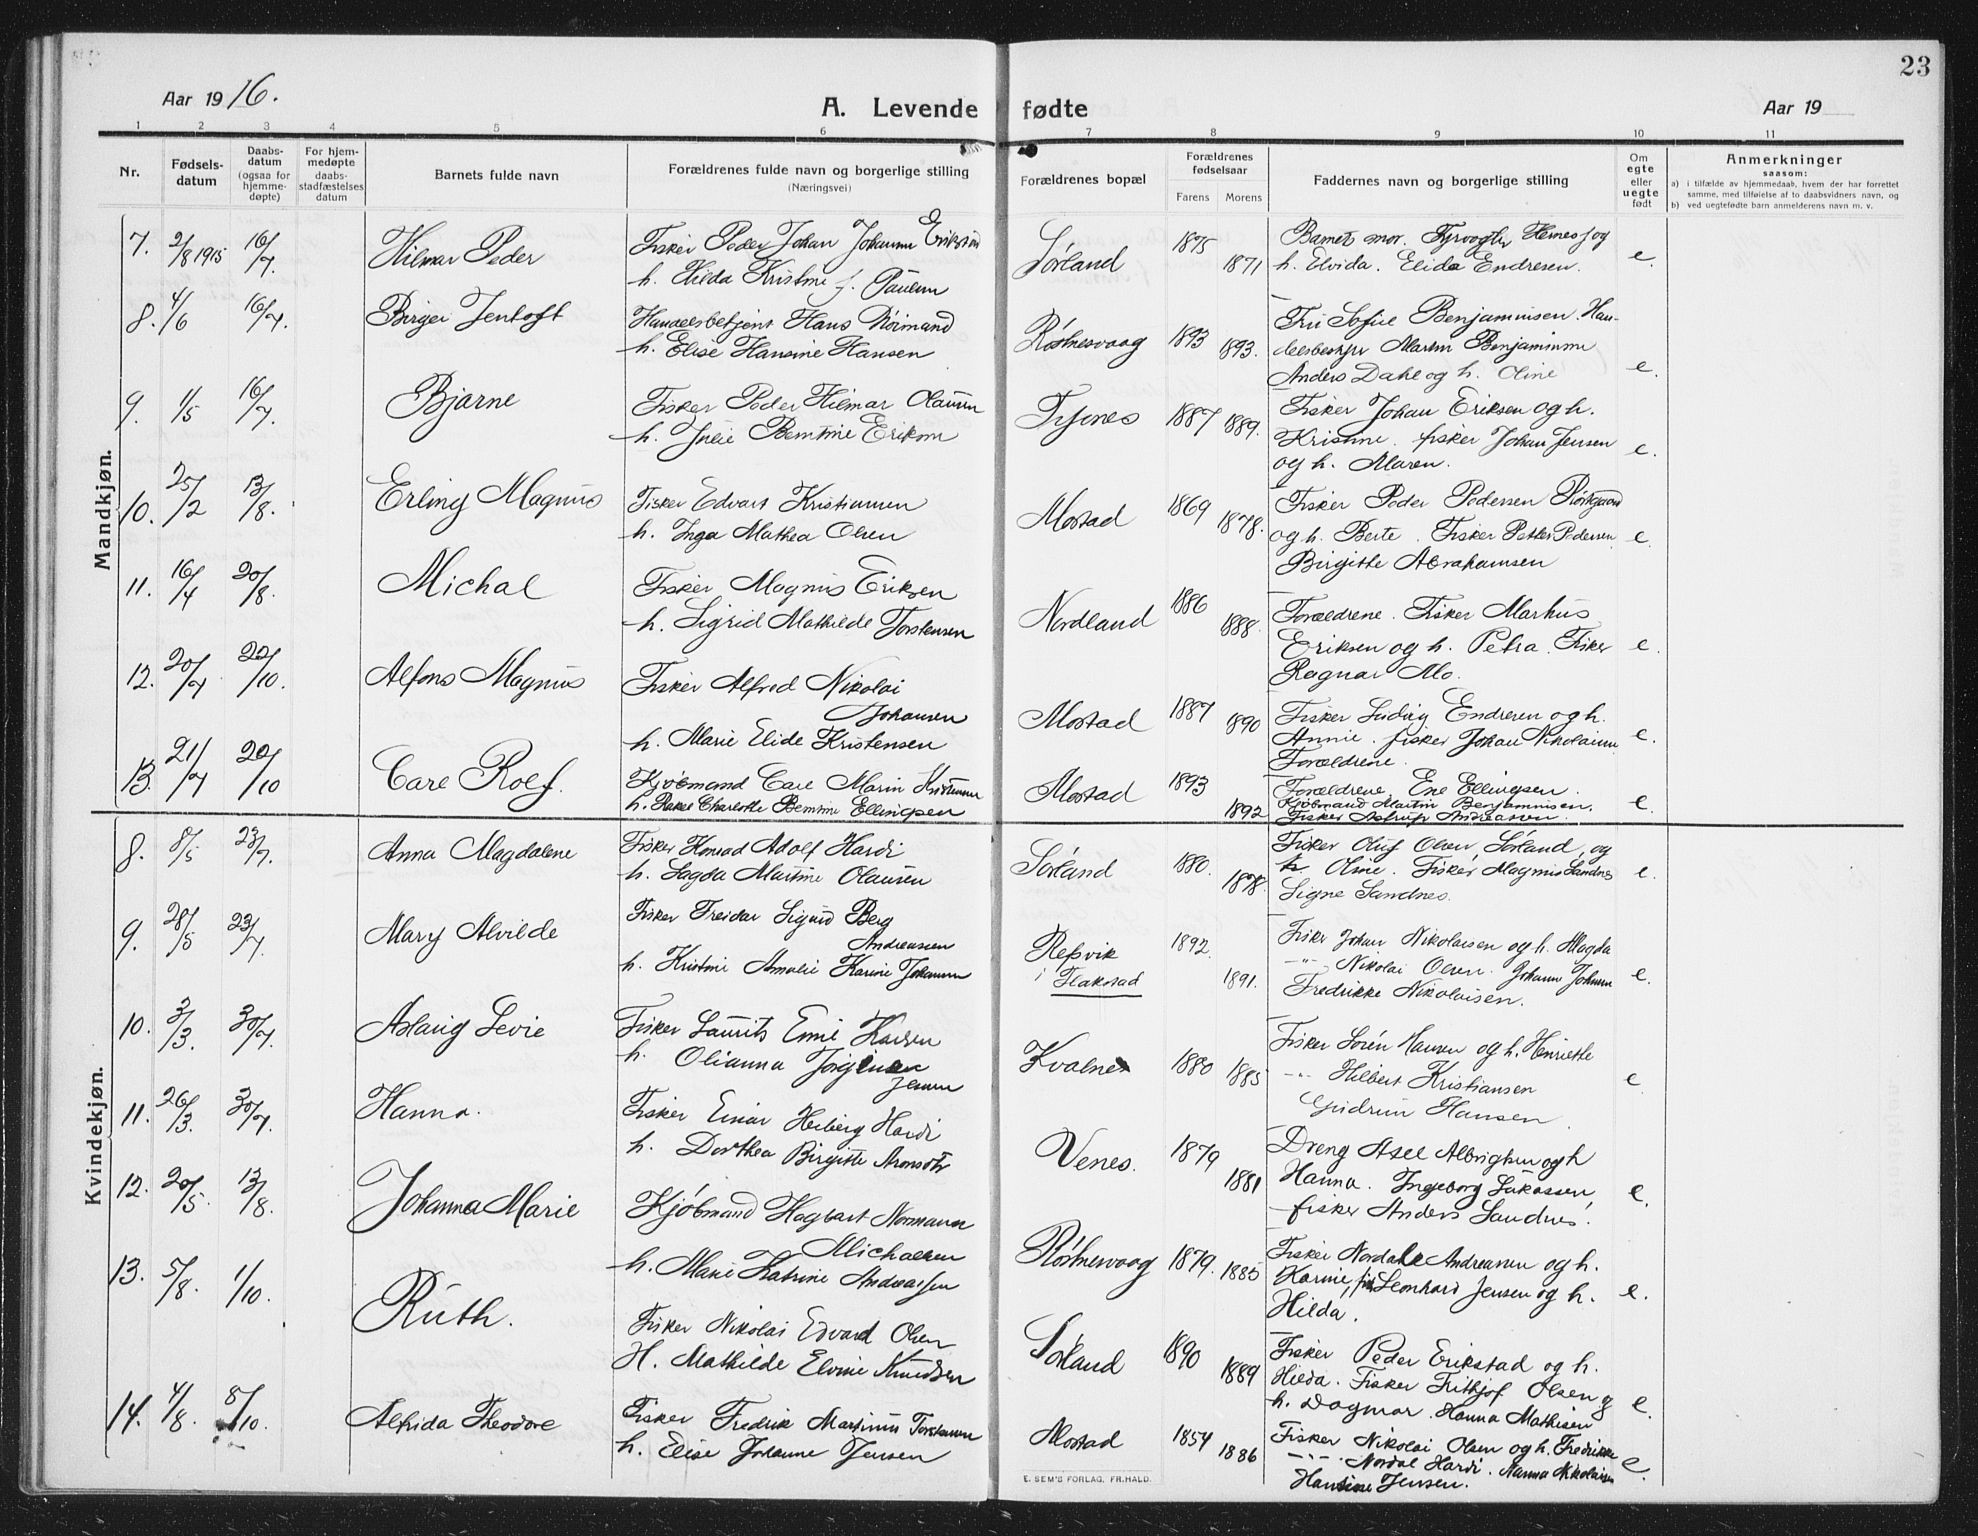 23
Aar 1916.
A. Levende fødte
Aar 19
1 2 3 4 5 6 7 8 9 10 11
Nr.
Fødsels-
datum
Daabs-
datum
(ogsaa for
hjemme-
døpte)
For hjem-
medøpte
daabs-
stadfæstelses
datum
Barnets fulde navn
Forældrenes fulde navn og borgerlige stilling
(Næringsvei)
Forældrenes bopæl
Forældrenes
fødselsaar
Farens Morens
Faddernes navn og borgerlige stilling
Om
egte
eller
uegte
født
Anmerkninger
saasom:
a) i tilfælde av hjemmedaab, hvem der har forrettet
samme, med tilføielse af to daabsvidners navn, og
b) ved uegtefødte barn anmelderens navn m. v.
Mandkjøn.
7. 2/8 1915 16/7. Hilmar Peder
Fisker Peder Johan Johannes Erikstad
h. Hilda Kristine f. Paulsen
Sørland 1875 1871
Barnets mor. Fyrvogter Hernes og
h. Elvida. Elida Endresen. e.
8. 4/6 16/7. Birger Jentoft
Handelsbetjent Hans Normand
h. Elise Hansine Hansen
Røstnesvaag 1893 1893.
Fru Sofie Benjaminsen. Han-
delsbestyr Martin Benjaminsen
Anders Dahl og h. Oline e.
9. 1/5 16/7. Bjarne
Fisker Peder Hilmar Olausen
h. Julie Berntine Eriksen
Tyvnes 1887 1889.
Fisker Johan Eriksen og h.
Kristine. fisker Johan Jensen
og h. Maren. e.
10. 25/2 13/8. Erling Magnus
Fisker Edvart Kristiansen
h. Inga Mathea Olsen
Mostad 1869 1878.
Fisker Peder Pedersen Røstgaard
og h. Berte. Fisker Petter Pedersen
Birgitte Abrahamsen e.
11. 16/4 20/8. Michal
Fisker Magnus Eriksen
h. Sigrid Mathilde Torstensen
Nordland 1886 1888.
Forældrene. Fisker Markus
Eriksen og h. Petra. Fisker
Ragnar Mo. e.
12. 20/7 22/10. Alfons Magnus
Fisker Alfred Nikolai
Johansen
h. Marie Elide Kristensen
Mostad 1887 1890
Fisker Ludvig Endresen og h.
Annie. fisker Johan Nikolaisen
Forældrene. e.
13. 21/7 22/10 Carl Rolf.
Kjøbmand Carl Marin Kristensen
h. Rakel Charlotte Berntine Ellingsen
Mostad 1893 1892
Forældrene. Ene Ellingsen.
Kjøbmand Martin Benjaminsen.
Fisker Astrup Andreassen. e.
Kvindekjøn.
8. 8/5 23/7. Anna Magdalene
Fisker Konrad Adolf Hardi
h. Magda Martine Olausen
Sørland 1880. 1878.
Fisker Oluf Olsen Sørland, og
h. Oline. Fisker Magnus Sandnes
Signe Sandnes. e.
9. 28/5 23/7. Mary Alvilde
Fisker Freidar Sigurd Berg
Andreassen
h. Kristine Amalie Karine Johansen
Refsvik
i Flakstad 1892. 1891.
Fisker Johan Nikolaisen og h. Magda
-"- Nikolai Olsen. Johanne Johansen
Fredrikke Nikolaisen. e.
10. 3/3. 30/7. Aslaug Levie
Fisker Laurits Emil Karlsen
h. Olianna Jørgine
Jensen
Kvalnes 1880 1885
Fisker Søren Hansen og h. Henriette
-"- Hilbert Kristiansen
Gudrun Hansen. e
11. 26/3. 30/7. Hanna.
Fisker Einar Heiberg Hardi
h. Dorthea Birgitte Aronsdtr
Venes. 1879 1881
Dreng Axel Albrigtsen og h
Hanna. Ingeborg Lukassen,
fisker Anders Sandnes. e.
12. 20/5. 13/8. Johanna Marie
Kjøbmand Hagbart Normann
Michalsen
h. Marie Katrine Andreassen
Røstnesvaag 1879. 1885
Fisker Nordahl Andreassen og h.
Karine, fisk Leonhard Jensen og h.
Hilda. e.
13. 5/8. 1/10. Ruth.
Fisker Nikolai Edvard Olsen
H. Mathilde Elvine Knudsen
Sørland 1890 1889
Fisker Peder Erikstad og h.
Hilda. Fisker Frithjof Olsen og
h. Dagmar. Hanna Mathisen e.
14. 4/8. 8/10. Alfrida Theodore
Fisker Fredrik Martinus Torstensen
h. Elise Johanne Jensen
Mostad 1854 1886
Fisker Nikolai Olsen og h. Fredrikke
-"- Nordal Hardi. Nanna Nikolaisen
Hansine Jensen. e.
E. SEM'S FORLAG, FR.HALD.